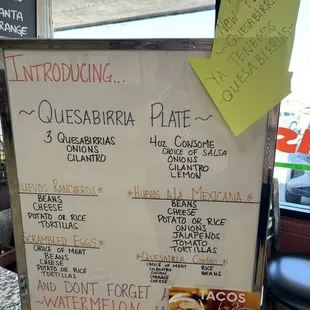 ANTA
RANGE
INTRODUCING...
~ QUESABIRRIA PLATE ~
3 QUESABIRRIAS
ONIONS
CILANTRO
4oz CONSOME
CHOICE OF SALSA
ONIONS
CILANTRO
LEMON
UEVOS RANCHEROS *
BEANS
CHEESE
POTATO OR RICE
TORTILLAS
* HUEVOS A LA MEXICANA *
BEANS
CHEESE
POTATO OR RICE
ONIONS
JALAPEÑOS
TOMATO
TORTILLAS
SCRAMBLED EGGS *
CHOICE OF MEAT
BEANS
CHEESE
POTATO OR RICE
TORTILLAS
* QUESADILLA COMBO *
CHOICE OF MEAT
CILANTRO
ONION
CABBAGE
CHEESE
RICE
BEANS
AND DONT FORGET
~WATERMELON
QUESABIRRI
YA TENEMOS
-QUESABIRRIAS-
TACOS